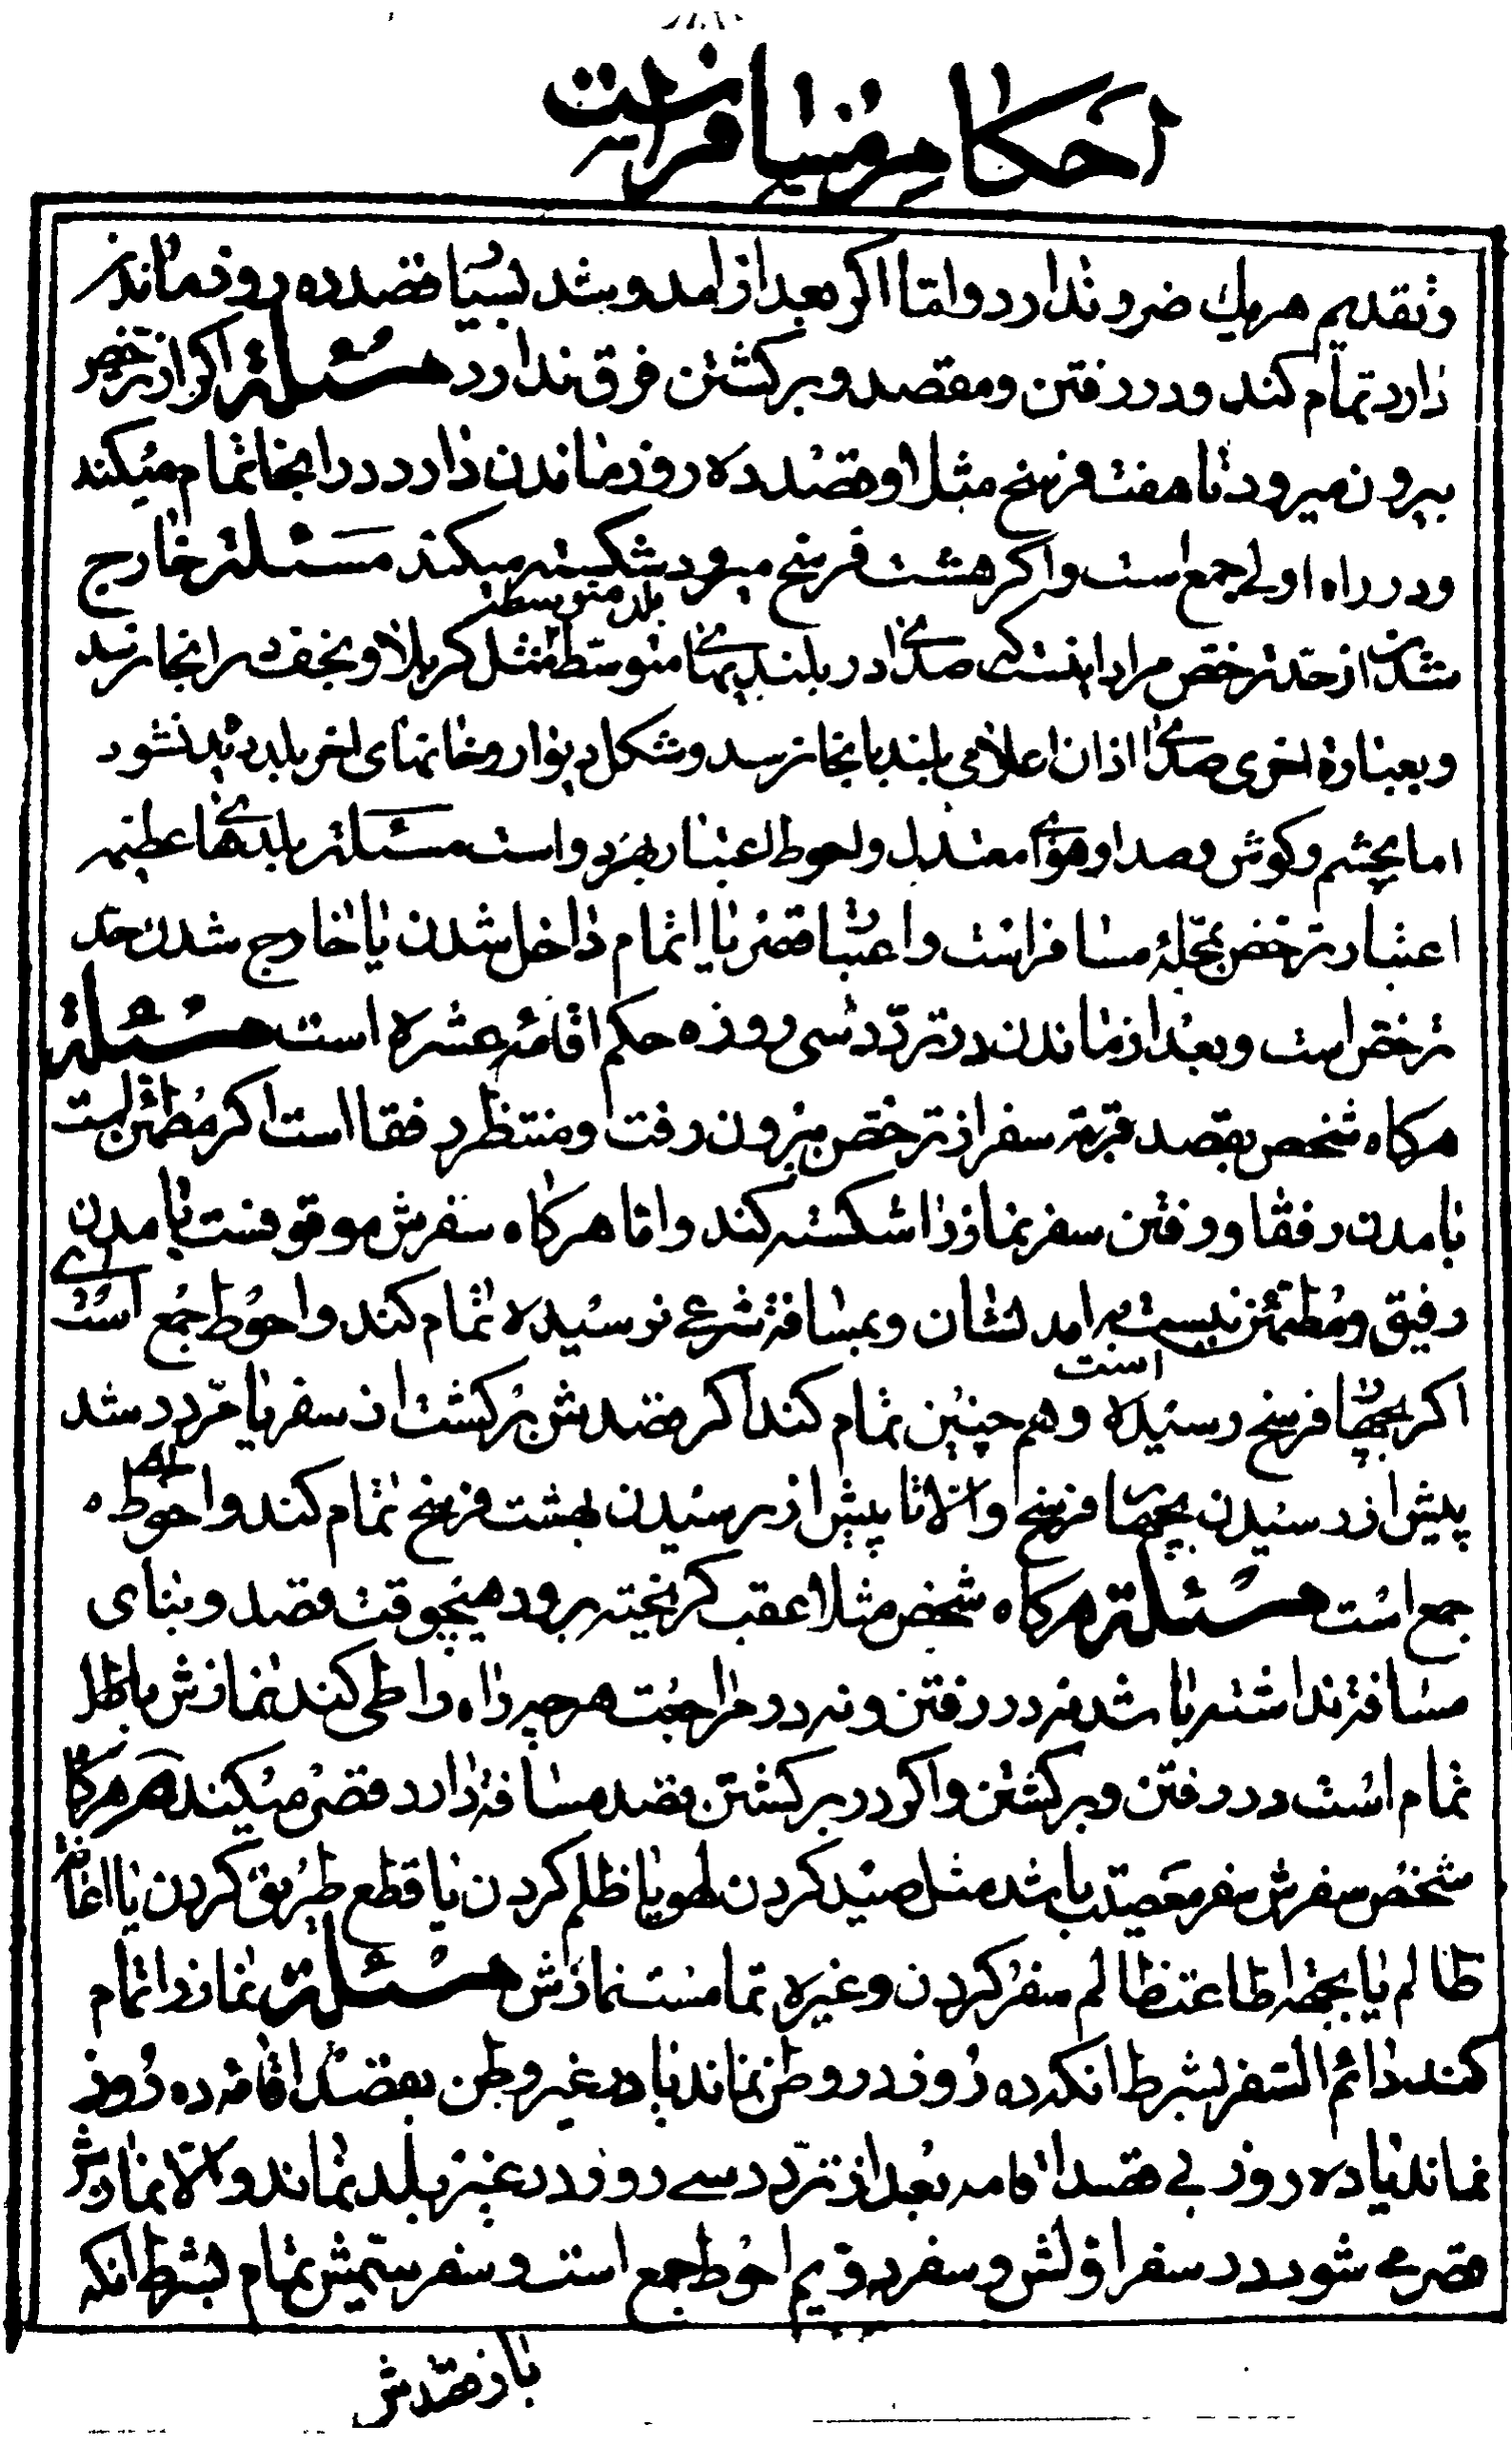 احکام مسافرت
وتقدیم هریك ضرو ندارد واما اکر بعد از امد و شد بسیا قصد ده روز ماندن
دارد تمام کند ودر رفتن ومقصد وبرکشتن فرق ندارد مسئلة اکر از ترخص
بیرون میرود تا هفت فرسخ مثلا وقصد ده روز ماندن دارد در انجا تمام میکند
ودر راه اولی جمع است واکر هشت فرسخ میرود شکسته میکند مسئلة خارج
شدن از حد ترخص مراد اینست که صدای اذان در بلندیهای متوسط مثل کربلا ونجف در انجا نرسد
وبعبارة اخری صدای اذان اعلامی بلند بانجا نرسد وشکل دیوار وخانهای اخر بلد دید نشود
اما بچشم وکوش وصدا وهوای معتدل واحوط اعتبار هر دو است مسئلة بلدهای عظیمه
اعتبار ترخص بمحلهٔ مسافر است واعتبا قصر یا اتمام داخل شدن یا خارج شدن حد
ترخص است وبعد از ماندن در تردد سی روزه حکم اقامهٔ عشره است مسئلة
هرکاه شخص بقصد قربة سفر از ترخص بیرون رفت ومنتظر رفقا است اکر مطمئن است
بامدن رفقا ورفتن سفر نماز را شکسته کند واما هرکاه سفرش موقوفست بامدن
رفیق ومطمئن نیست به امدنشان وبمسافة شرعی نرسیده تمام کند واحوط جمع است
اکر بچها فرسخ رسیده است وهم چنین تمام کند اکر قصدش برکشت از سفر یا مردد شد
پیش از رسیدن بچها فرسخ والا تا پیش از رسیدن بهشت فرسخ تمام کند واحوط
جمع است مسئلة هرکاه شخص مثلا عقب کریخته برود هیچوقت قصد وبنای
مسافة نداشته باشد نه در رفتن ونه در مراجعت هرچه راه را طی کند نمازش
تمام است در رفتن وبرکشتن واکر در برکشتن قصد مسافة دارد قصر میکند هرکا
شخص سفرش سفر معصیت باشد مثل صید کردن لهو یا ظلم کردن یا قطع طریق کردن یا اعانة
ظالم یا بجهة اطاعت ظالم سفر کردن وغیره تمامست نمازش مسئلة نماز را تمام
کند دائم السفر بشرط انکه ده روز در وطن نماند یا در غیر وطن بقصد اقامه ده روز
نماند یا ده روز بی قصد اقامه بعد از تردد سی روز در غیر بلد نماند والا نمازش
قصر می شود در سفر اولش وسفر دویم احوط جمع است وسفر سیمش تمام بشرط انکه
باز قصدش